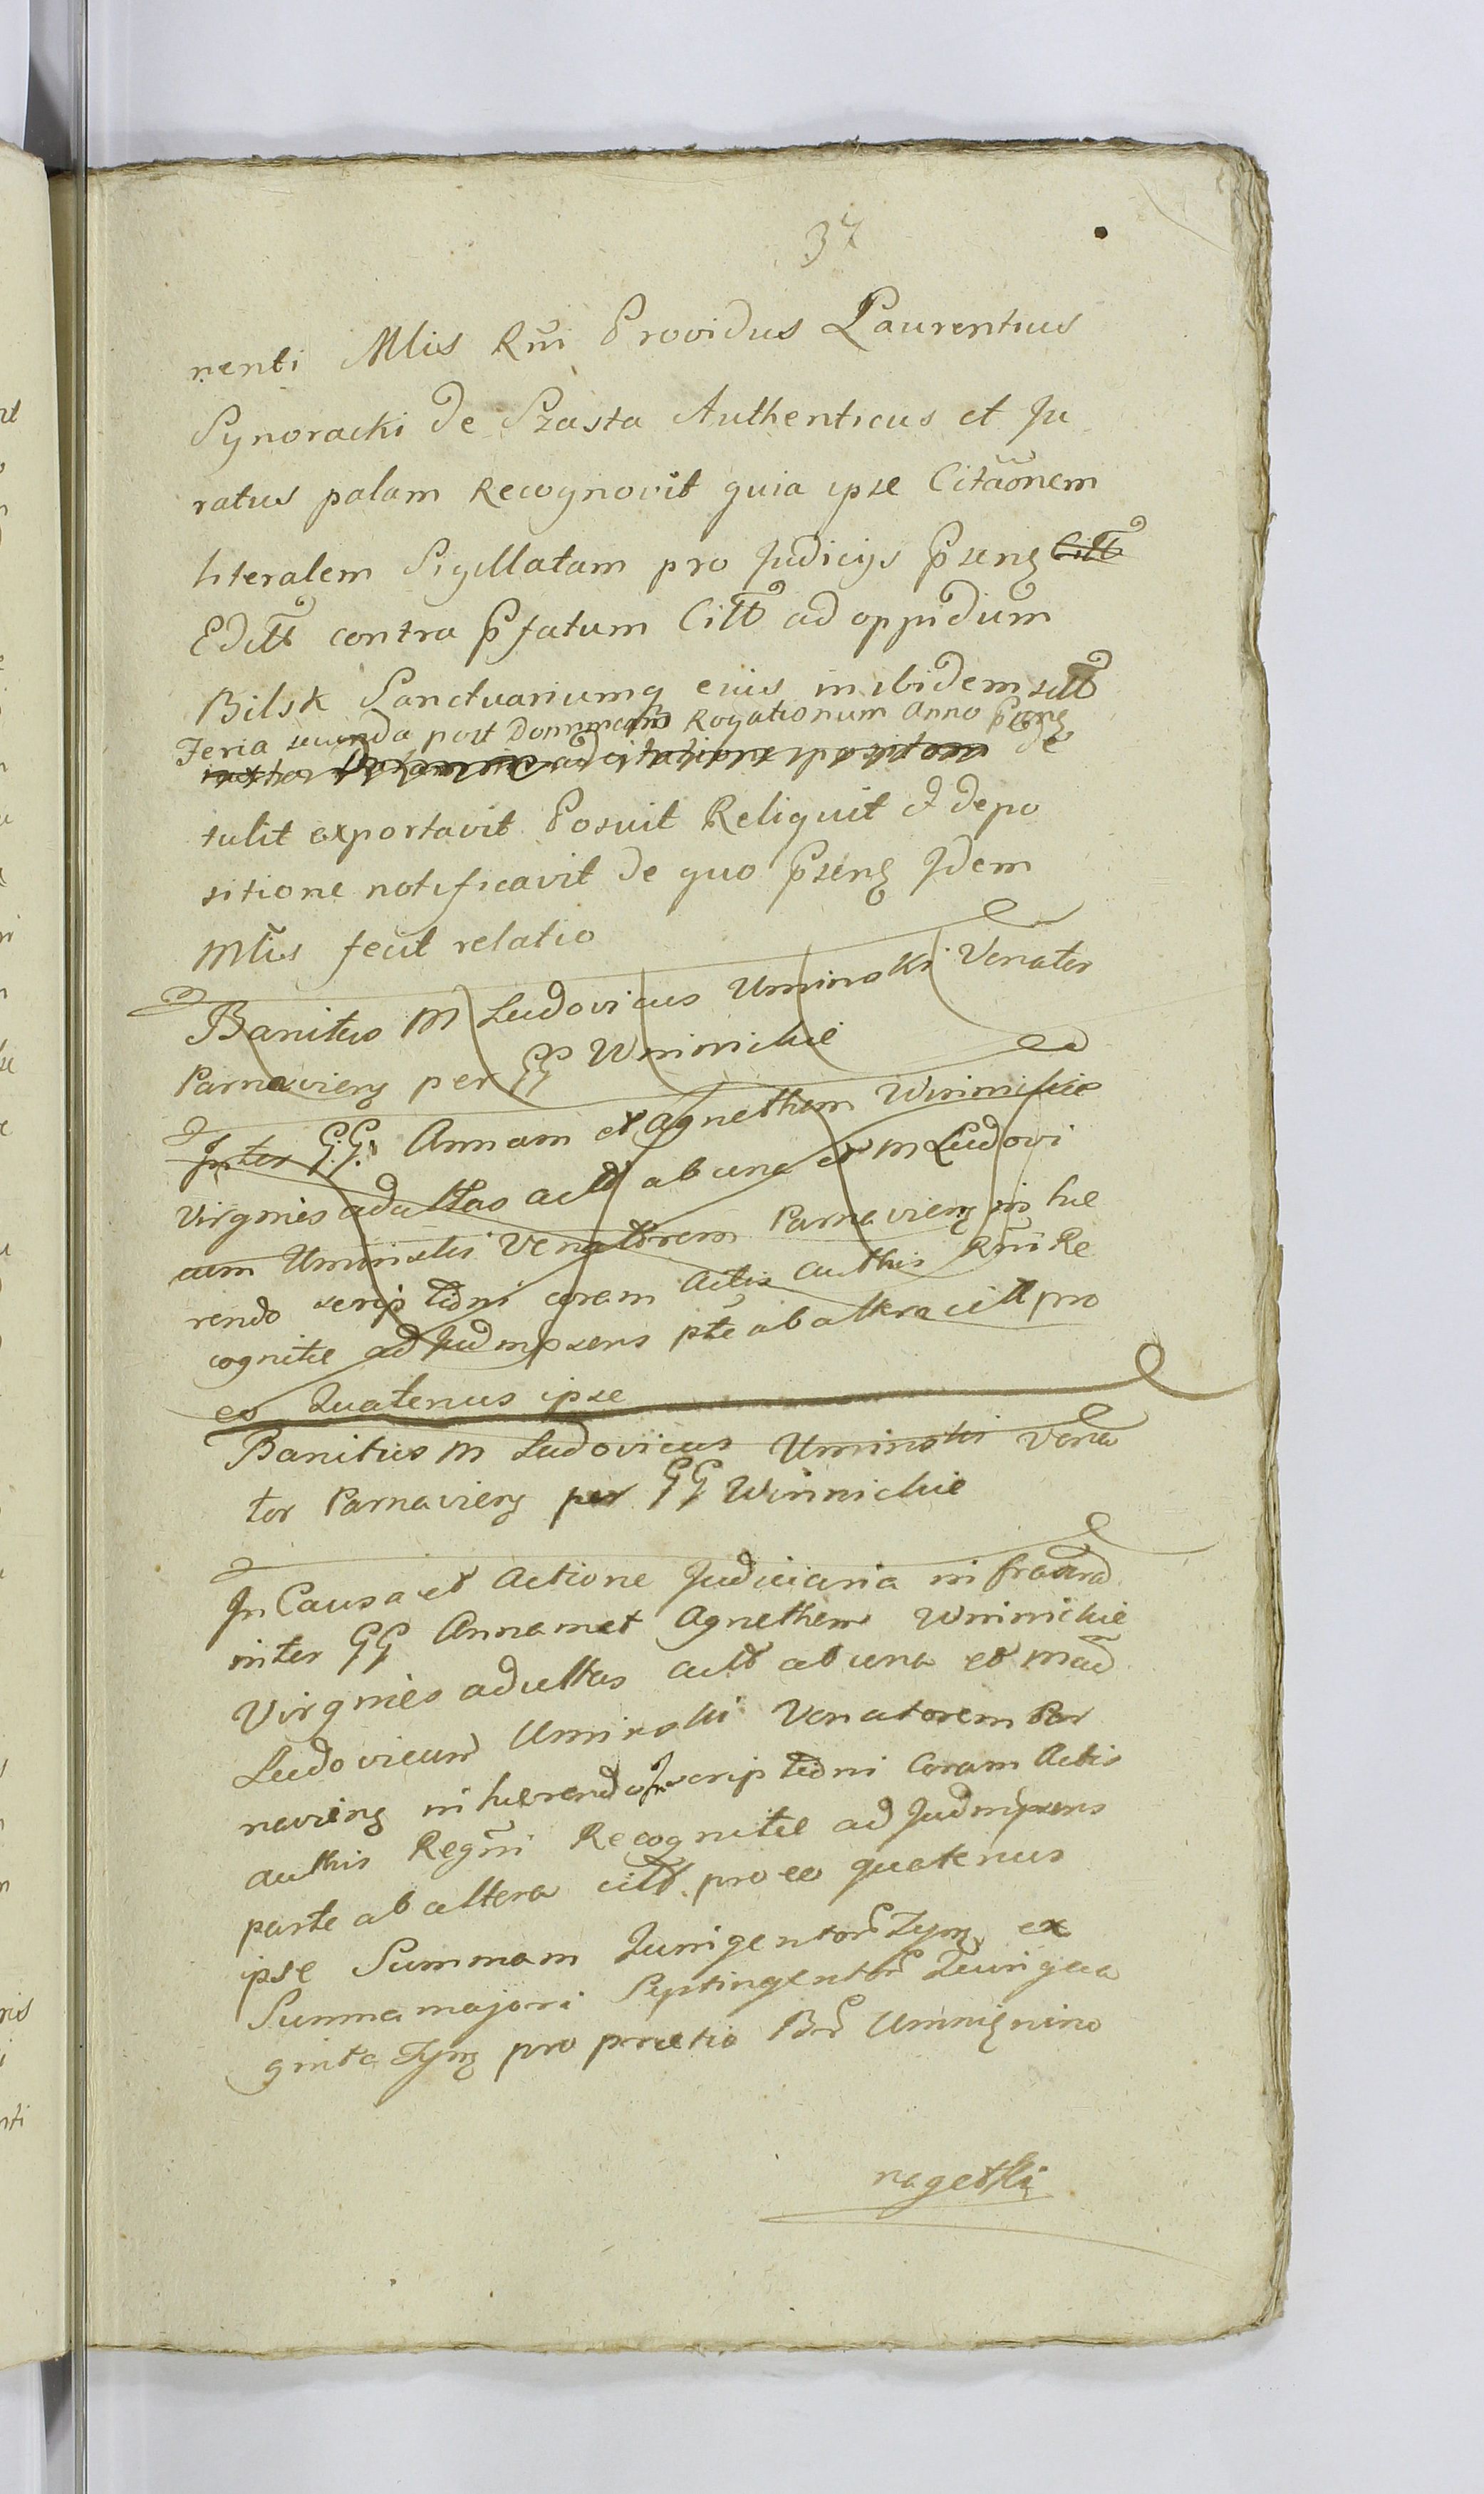 37
nenti Mlis Rni Providus Laurentius
Synoracki de Szasta Authenticus et Ju
ratus palam Recognovit quia ipse Citaonem
literalem Sigillatam pro Judicijs pseng Citt
Editt contra pfatum Citt ad oppidum
Bilsk Sanctuariumq eius inibidem sitt
Feria secunda post Dominicam Rogationum Anno pseng
de
tulit exportavit Posuit Reliquit et depo
sitione notificavit de quo pseng Idem
Mlis fecit relatio
Banitus M Ludovicus Uminski Venator
Parnavieng per GG Winnickie
Inter G.G. Annam et Agnethem Winnickie
Virgines adultas actt ab una et M Ludovi
cum Uminski Venatorem Parnavieng in hæ
rendo scriptioni coram Actis authis Rni Re
cognitæ ad Judm psens pte ab altera citt pro
eo Quatenus ipse
Banitus M Ludovicus Uminski Vena
tor Parnavieng per GG Winnickie
In Causa et Actione Judiciaria infrascrad
inter GG Annam et Agnethem Winnickie
Virgines adultas actt ab una et Mad
Ludovicum Uminski Venatorem Par
navieng inhærendo Inscriptioni Coram Actis
authis Regni Recognitæ ad Judm psens
parte ab altera citt pro eo quatenus
ipse Summam Quingentor Zymq ex
Summa majori Septingentor Quinqua
ginta Zymq pro prætio Br